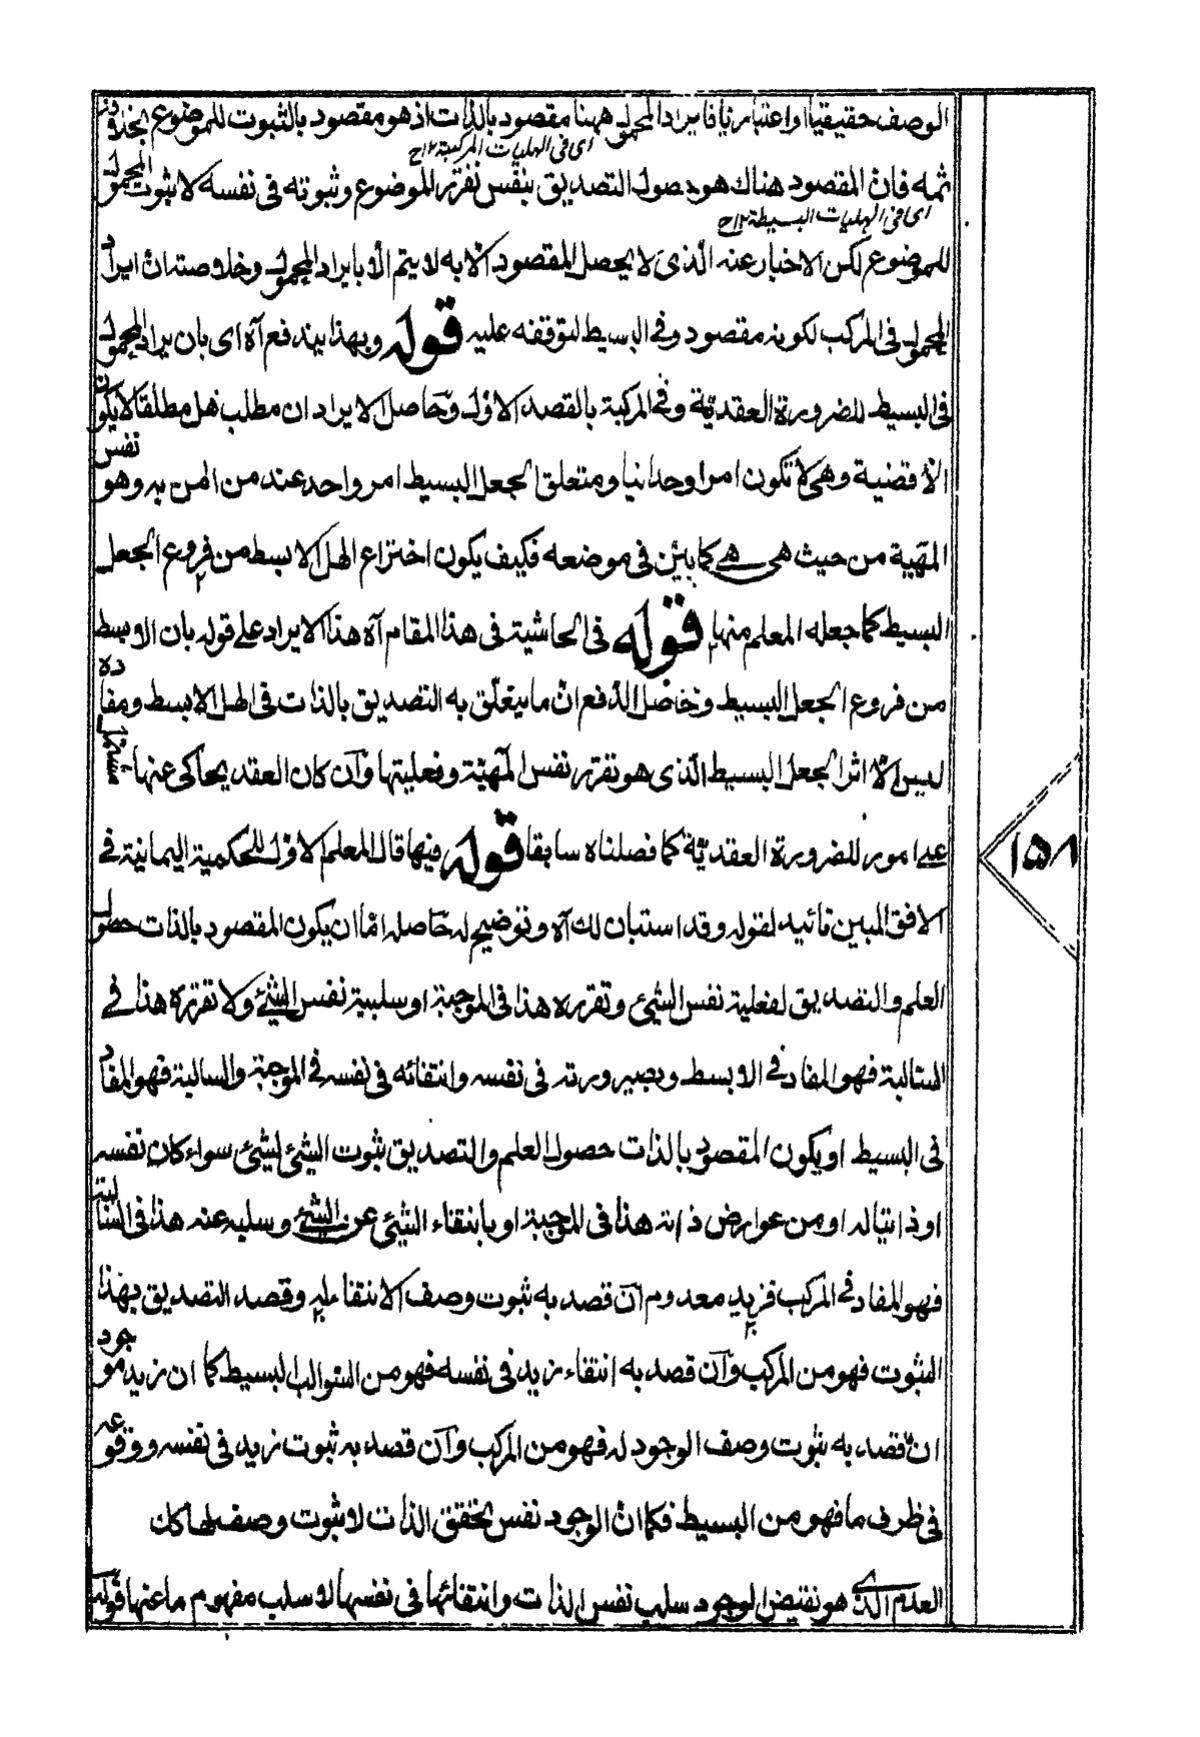 الوصف حقيقيا او اعتباريا فايراد المحمول ههنا مقصود بالذات اذ هو مقصود بالثبوت للموضوع بخلاف
اى فى الهليات المركبة ١٢ح
ثمه فان المقصود هناك هو حصول التصديق بنفس تقرر الموضوع وثبوته فى نفسه لا ثبوت المحمول
اى فى الهليات البسيطة ١٢ح
للموضوع لكن الاخبار عنه الذى لا يحصل المقصود الا به لا يتم الا بايراد المحمول وخلاصته ان ايراد
المحمول فى المركب لكونه مقصود وفى البسيط لتوقفه عليه قوله وبهذا يندفع آه اى بان يراد المحمول
فى البسيط للضرورة العقدية وفى المركبة بالقصد الاول وحاصل الايراد ان مطلب هل مطلقا لا يكون
الا قضية وهى لا تكون امرا وحدانيا ومتعلق الجعل البسيط امر واحد عند من آمن به وهو نفس
المهية من حيث هى هى كما بين فى موضعه فكيف يكون اختراع الهل الابسط من فروع الجعل
البسيط كما جعله المعلم منها قوله فى الحاشية فى هذا المقام آه هذا الايراد على قوله بان الابسط
من فروع الجعل البسيط وحاصل الدفع ان ما يتعلق به التصديق بالذات فى الهل الابسط ومفاده
ليس الا اثر الجعل البسيط الذى هو تقرر نفس المهية وفعليتها وان كان العقد يحاكى عنها مشتمل
على امور للضرورة العقدية كما فصلناه سابقا قوله فيها قال المعلم الاول للحكمية اليمانية فى
الافق المبين تائيد لقوله وقد استبان لك آه وتوضيح له حاصله اما ان يكون المقصود بالذات حصول
العلم والتصديق لفعلية نفس الشئ وتقرره هذا فى الموجبة او سلبية نفس الشئ ولا تقرره هذا فى
السالبة فهو المفاد فى الابسط وبصيرورته فى نفسه وانتفائه فى نفسه فى الموجبة والسالبة فهو المفاد
فى البسيط او يكون المقصود بالذات حصول العلم والتصديق بثبوت الشئ لشئ سواء كان نفسه
او ذاتياله او من عوارض ذاته هذا فى الموجبة او بانتفاء الشئ عن الشئ وسلبه عنه هذا فى السالبة
فهو المفاد فى المركب فزيد معدوم ان قصد به ثبوت وصف الانتفاء عليه وقصد التصديق بهذا
الثبوت فهو من المركب وان قصد به انتفاء زيد فى نفسه فهو من السوالب البسيط كما ان زيد موجود
ان قصد به ثبوت وصف الوجود له فهو من المركب وان قصد به ثبوت زيد فى نفسه ووقوعه
فى ظرف ما فهو من البسيط فكما ان الوجود نفس تحقق الذات لا ثبوت وصف لها كك
العدم الذى هو نقيض الوجود سلب نفس الذات وانتفائها فى نفسها لا سلب مفهوم ما عنها قوله
١٥٨